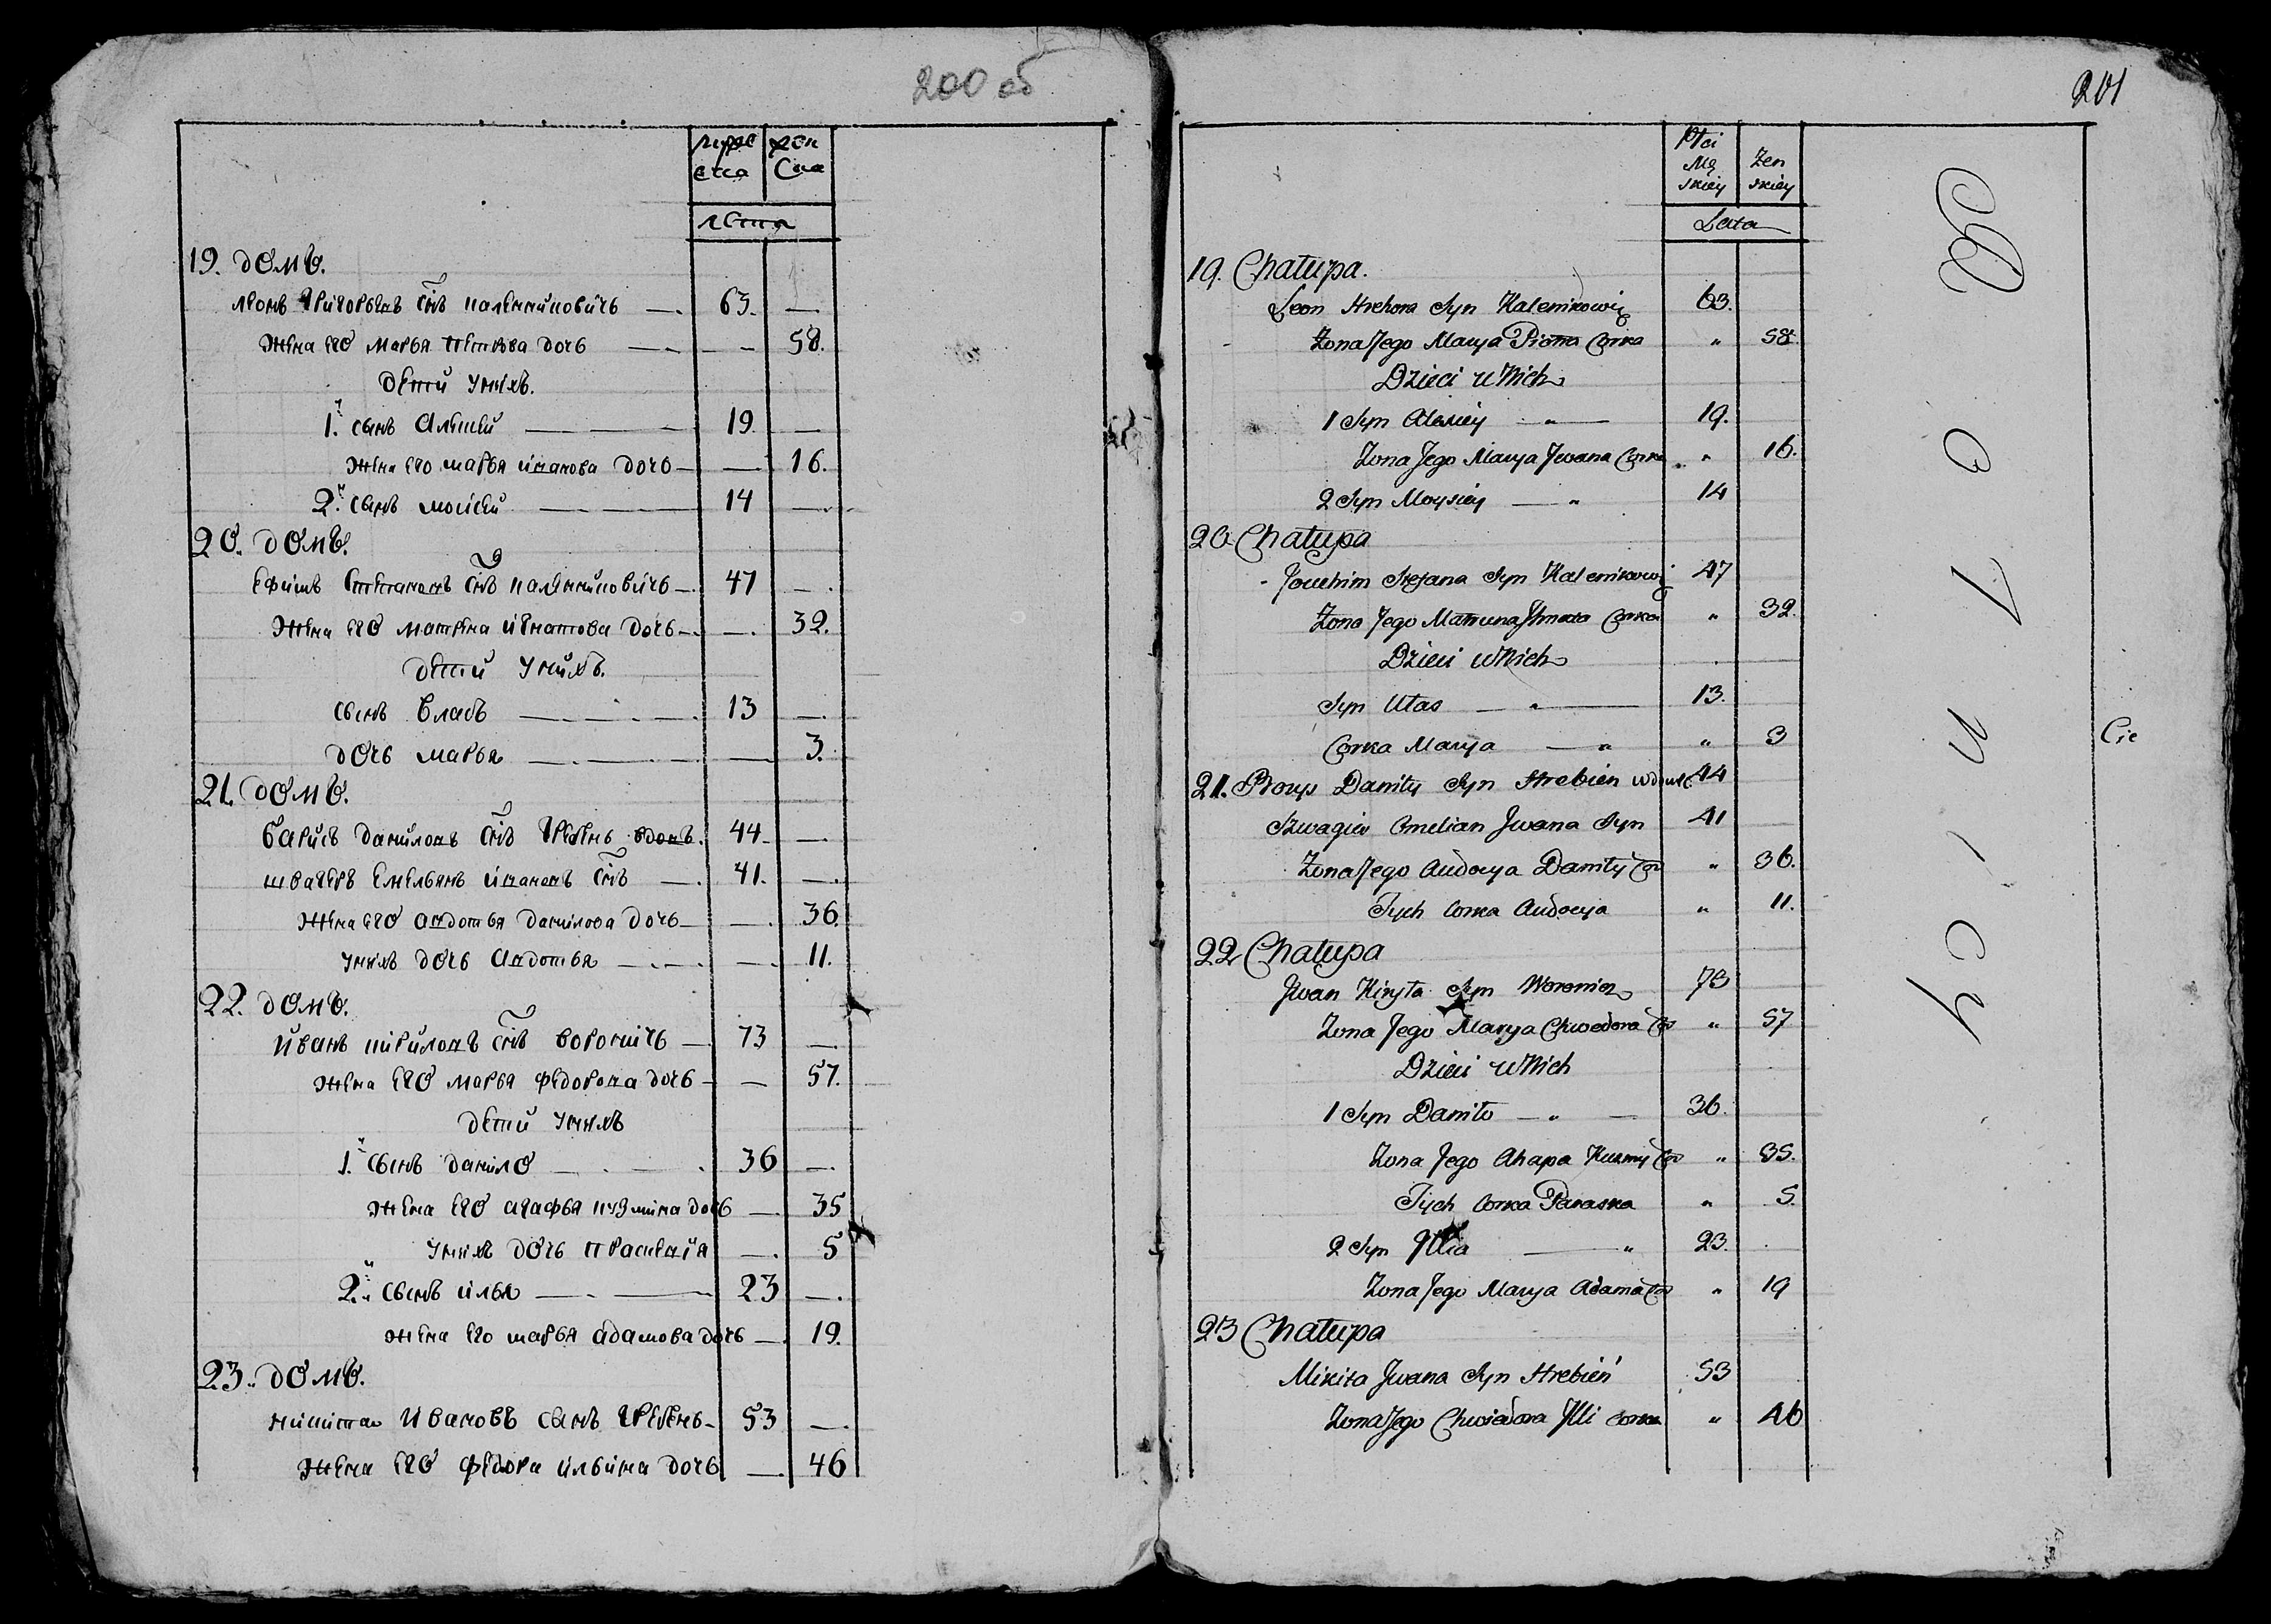 200 об
мужеска женска
лета
19. домъ.
леонъ Григорьевъ снъ каленниковичь — 63. —
жена его марья петрова дочь — — 58.
дети унихъ.
1.й сынъ Алексей — 19 —
жена его марья иванова дочь — — 16.
2.й сынъ моисей — 14 —
20. домъ.
Ефимъ Степановъ снъ каленниковичь — 47 —
жена его матрена игнатова дочь — — 32.
дети унихъ.
сынъ власъ — 13 —
дочь марья — — 3.
21. домъ.
барисъ даниловъ снъ Гребень вдовъ. 44 —
швагеръ Емельянъ ивановъ снъ — 41. —
жена его авдотья данилова дочь — — 36.
унихъ дочь авдотья — — 11.
22. домъ.
иванъ кириловъ снъ вороничь — 73 —
жена его марья федорова дочь — — 57.
дети унихъ
1.й сынъ данило — 36 —
жена его агафья кузмина дочь — 35
унихъ дочь прасковiя — 5
2.й сынъ илья — 23 —
жена его марья адамова дочь — 19.
23. домъ.
никита ивановъ сынъ Гребень — 53 —
жена его федора ильина дочь — 46
201
Płci Mę skiey Zen skiey
Lata
19. Chałupa.
Leon Hrehora Syn Kalenikowicz 63.
Zona Jego Marya Piotra Corka " 58
Dzieci u Nich
1 Syn Alexiey — " — 19.
Zona Jego Marya Jwana Corka " 16.
2 Syn Moysiey — " 14
20 Chałupa
Jouchim Stefana Syn Kalenikowicz 47
Zona Jego Matruna Jhnata Corka " 32.
Dzieci u Nich
Syn Ułas — " — 13.
Corka Marya — " " 3
21. Borys Daniły Syn Hrebień wdowiec 44
Szwagier Omelian Jwana Syn 41
Zona Jego Audocya Daniły Cor " 36.
Tych Corka Audocya " 11.
22 Chałupa
Jwan Kiryła Syn Woronicz 73
Zona Jego Marya Chwedora Cor " 57
Dzieci u Nich
1 Syn Daniło — " — 36.
Zona Jego Ahapa Kuzmy Cor " 35.
Tych Corka Paraska " 5.
2 Syn Jllia — " 23.
Zona Jego Marya Adama Cor " 19
23 Chałupa
Mikita Jwana Syn Hrebień 53
Zona Jego Chwiedora Jlli Corka " 46
Cie